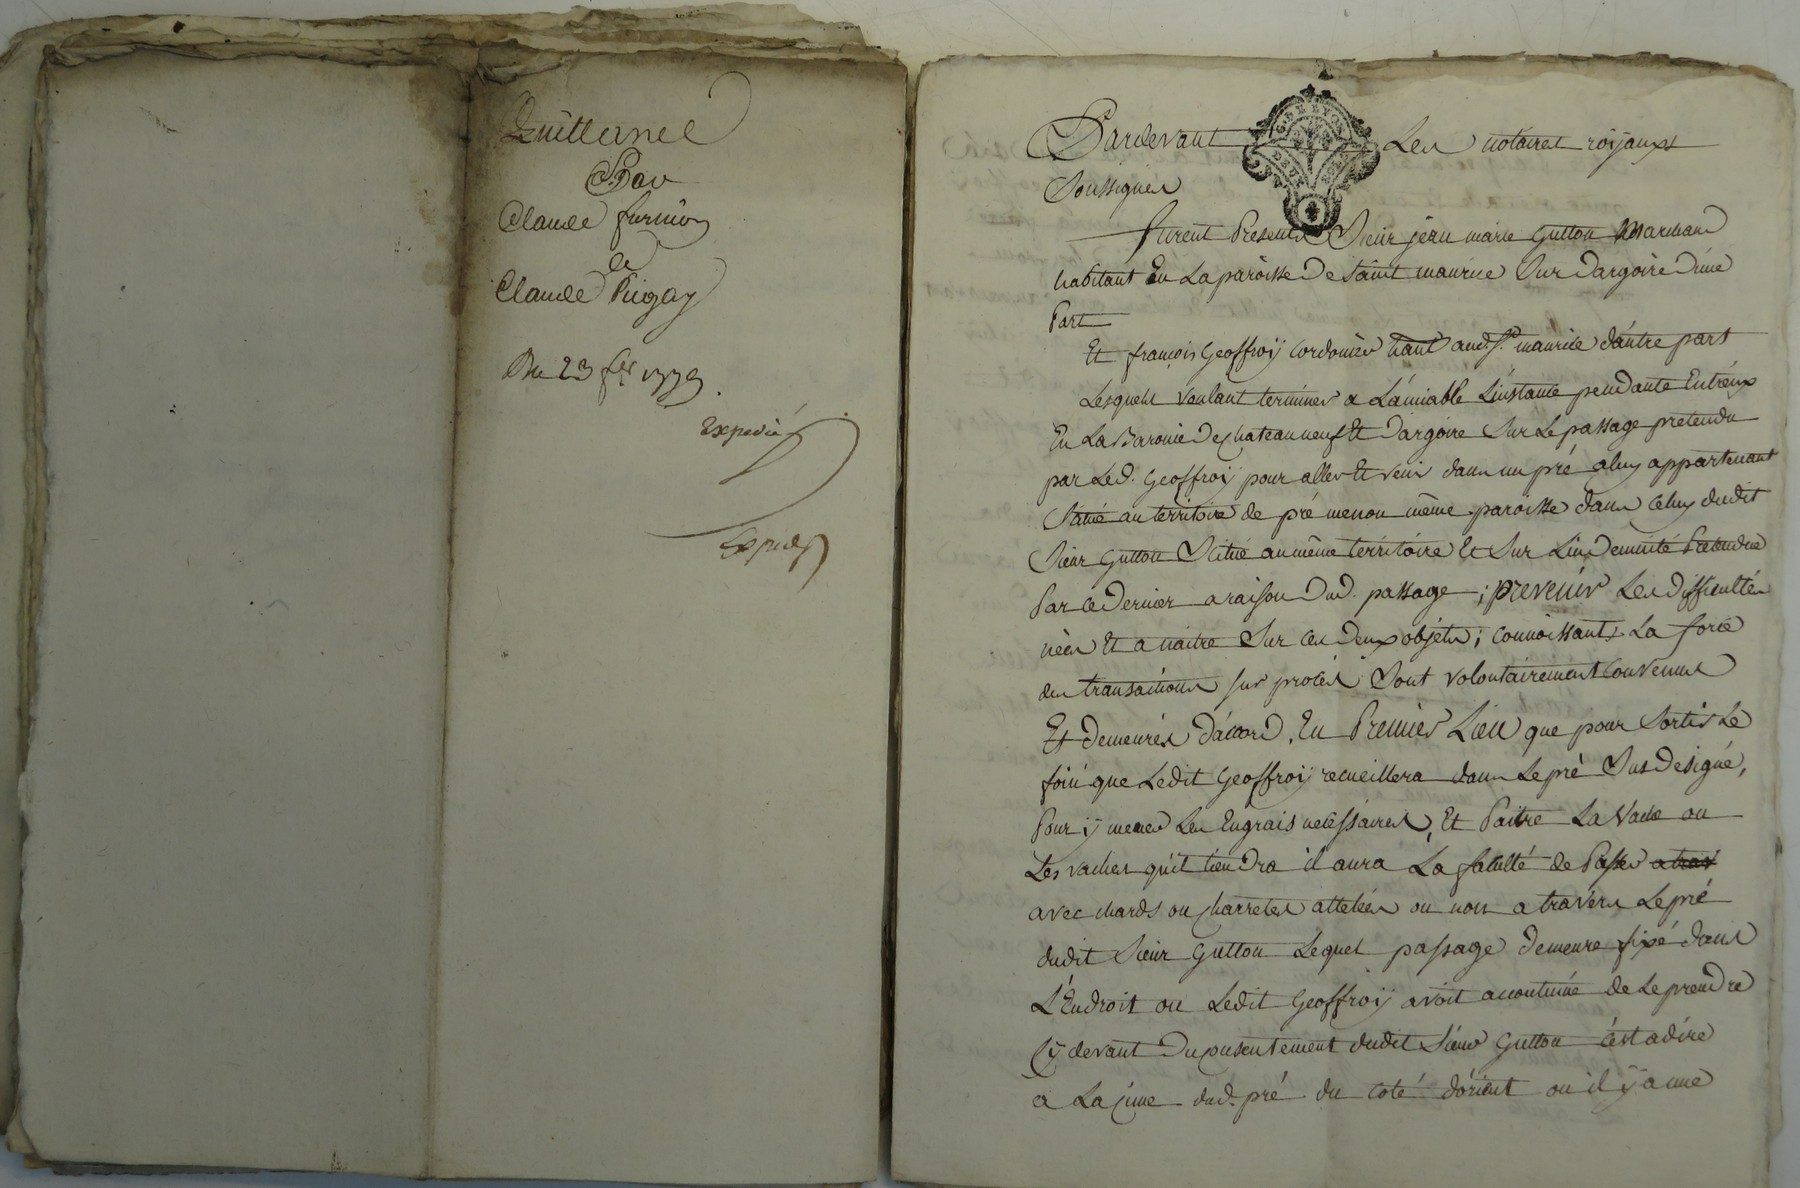 Quittance
Par
Claude furnion
a
Claude Pugay
Du 23 fer 1779
Expedié
Expedié
Pardevant Les notaires roÿaux
Soussignes
G. DE LYON
DEUX S
furent Presents Sieur jean marie Gutton Marchand
habitant En La paroisse De saint maurice Sur dargoire D'une
Part
Et francois Geoffroÿ Cordonier hant aud. St. maurice d'autre part
Lesquels voulant terminer a L'amiable L'instance pendante Entr'eux
En La Baronie De chateauneuf Et Dargoire Sur Le passage pretendu
par Led. Geoffroÿ pour aller Et venir dans un pré a luy appartenant
Situé au territoire de pré menon même paroisse dans Celuy dudit
Sieur Gutton Scitué au même territoire Et Sur L'indemnité Pretendue
Par ce Dernier a raison Dud. passage ; prevenir Les difficultés
neés Et a naitre Sur Ces Deux objets ; connoissants La force
des transactions sur procés Sont volontairement Convenus
Et demeurés D'accord. En Premier Lieu que pour Sortir Le
foin que Ledit Geoffroÿ recueillera dans Le pré Sus Designé,
Pour ÿ mener Les Engrais necessaires, Et Paitre La Vache ou
Les vaches qu'il tiendra il aura La faculté de Passer
avec chards ou charretes attelées ou non a travers Le pré
dudit Sieur Gutton Lequel passage demeure fixé dans
L'Endroit ou Ledit Geoffroÿ avoit accoutumé de Le prendre
Cÿ devant Du consentement dudit Sieur Gutton c'est a dire
a La cime dud. pré du coté d'orient ou il ÿ a une